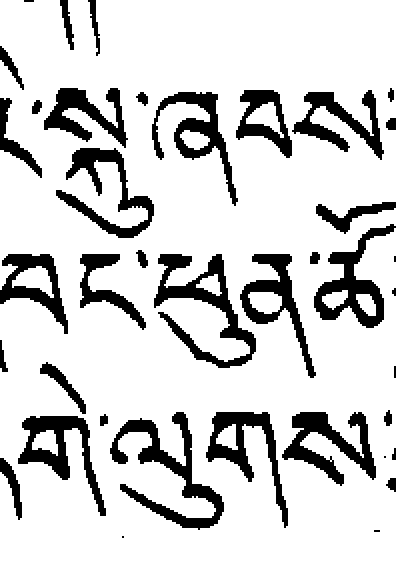 སྐུ་ཞབས་
བང་ཕུན་ཚོ
གེ་ལུགས་